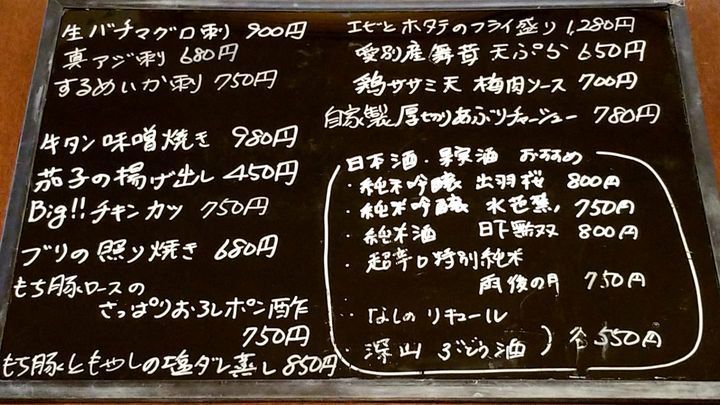 生バチマグロ刺 900円
真アジ刺 680円
するめいか刺 750円
牛タン味噌焼き 980円
茄子の揚げ出し 450円
Big!!チキンカツ 750円
ブリの照り焼き 680円
もち豚ロースの
さっぱりおろしポン酢
750円
もち豚ともやしの塩ダレ蒸し 850円
エビとホタテのフライ盛り 1,280円
愛別産舞茸 天ぷら 650円
鶏ササミ天 梅肉ソース 700円
自家製厚切りあぶりチャーシュー 780円
日本酒・果実酒 おすすめ
・純米吟醸 出羽桜 800円
・純米吟醸 水芭蕉 750円
・純米酒 日下無双 800円
・超辛口特別純米
雨後の月 750円
・なしのリキュール
・深山ぶどう酒 ) 各550円